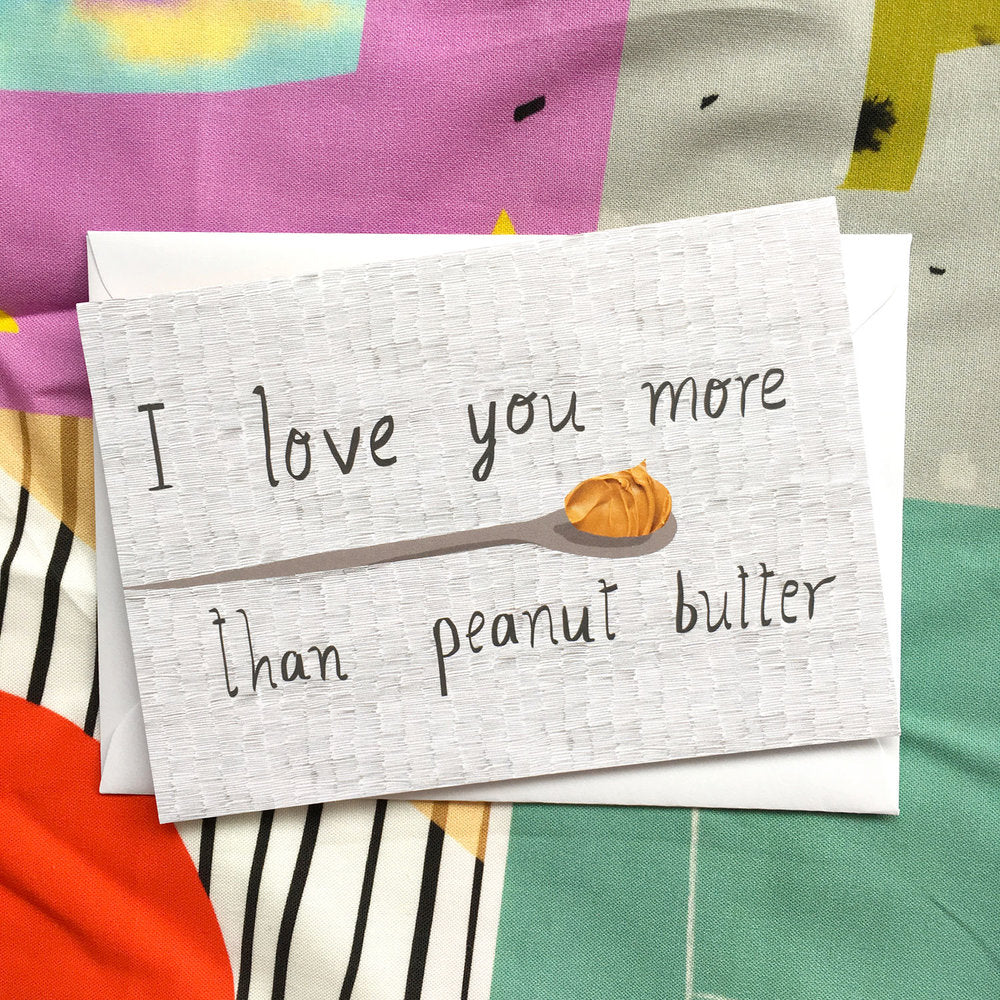 I love you more
than peanut butter